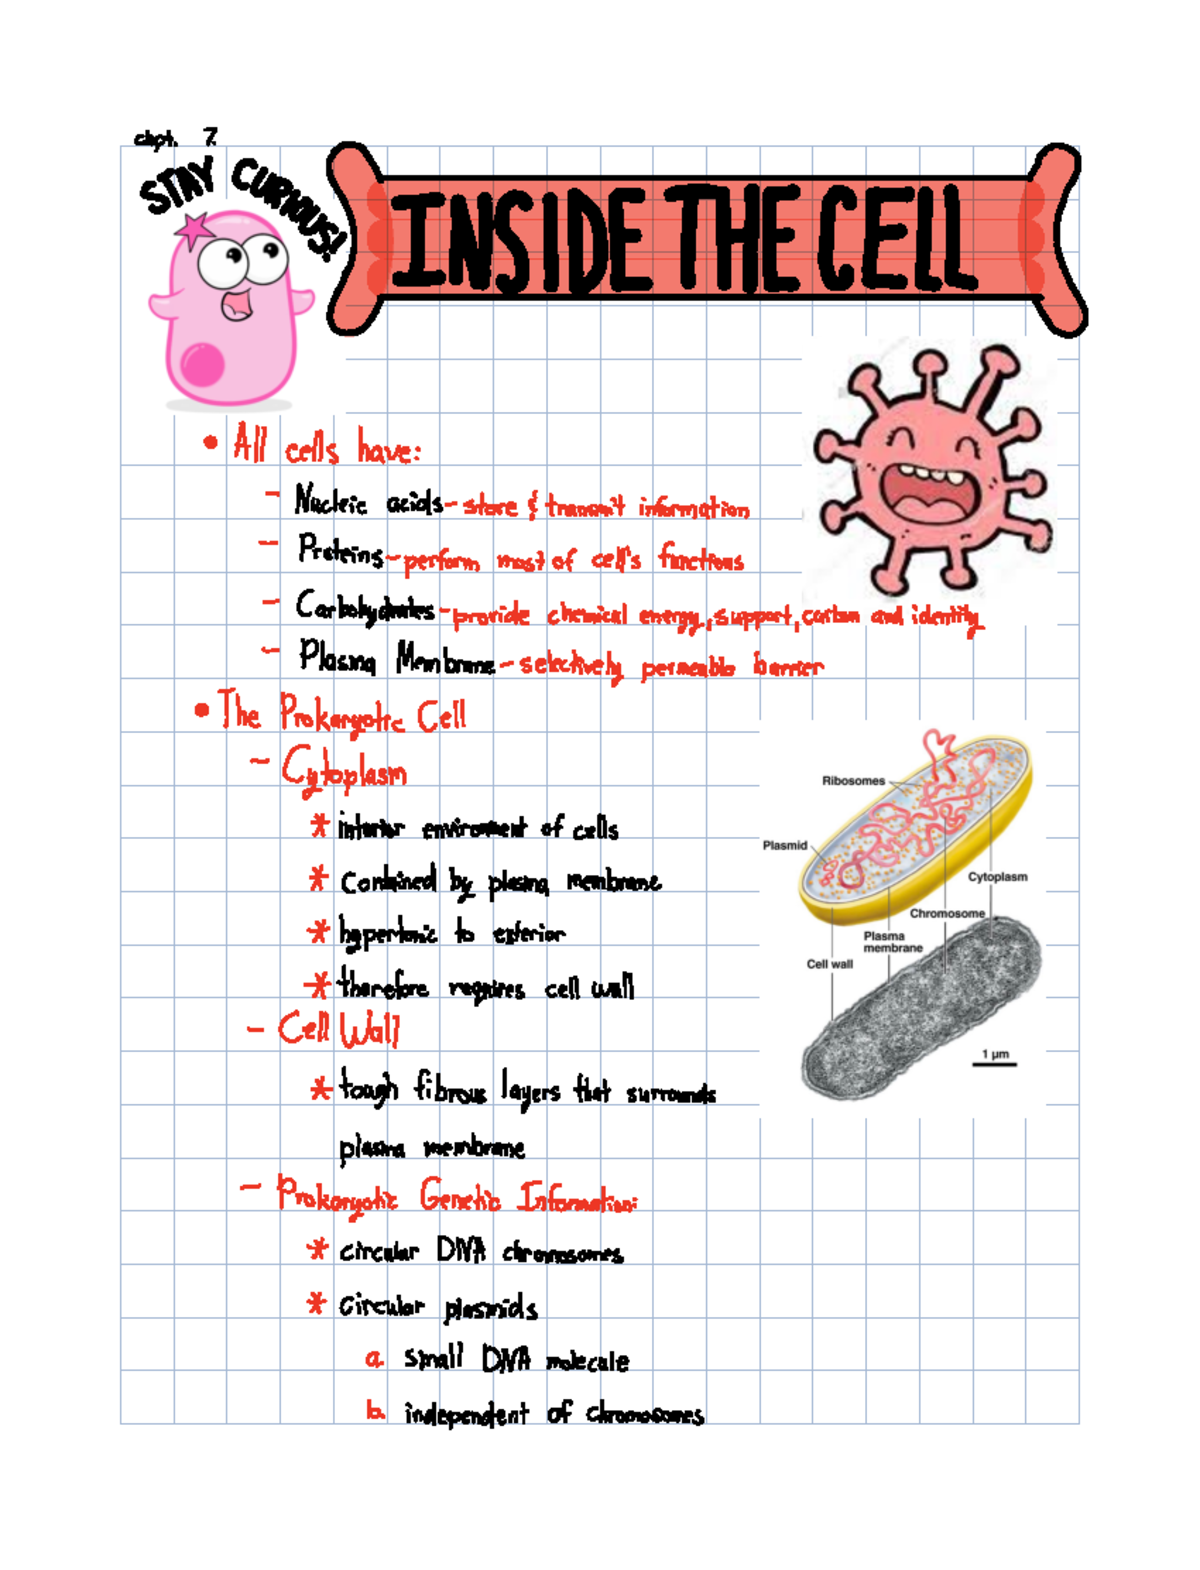 chpt. 7
STAY CURIOUS!
INSIDE THE CELL
• All cells have:
- Nucleic acids - store & transmit information
- Proteins - perform most of cell's functions
- Carbohydrates - provide chemical energy, support, carbon and identity
- Plasma Membrane - selectively permeable barrier
• The Prokaryotic Cell
- Cytoplasm
* interior environment of cells
* Contained by plasma membrane
* hypertonic to exterior
* therefore requires cell wall
- Cell Wall
* tough fibrous layers that surrounds
plasma membrane
- Prokaryotic Genetic Information:
* circular DNA chromosomes
* circular plasmids
a. small DNA molecule
b. independent of chromosomes
Ribosomes
Plasmid
Cytoplasm
Chromosome
Plasma
membrane
Cell wall
1 µm